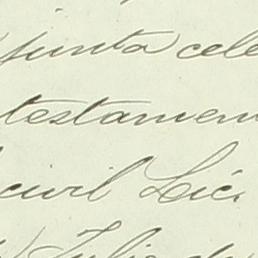 junta cele
testamen
civil Lic.
Julio de